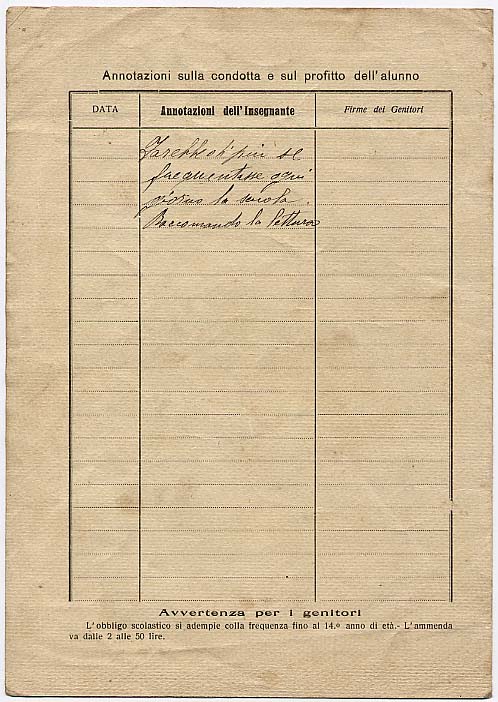 Annotazioni sulla condotta e sul profitto dell'alunno
DATA
Annotazioni dell'Insegnante
Firme dei Genitori
Farebbe di più se
frequentasse ogni
giorno la scuola.
Raccomando la lettura
Avvertenza per i genitori
L'obbligo scolastico si adempie colla frequenza fino al 14.º anno di età.- L'ammenda
va dalle 2 alle 50 lire.